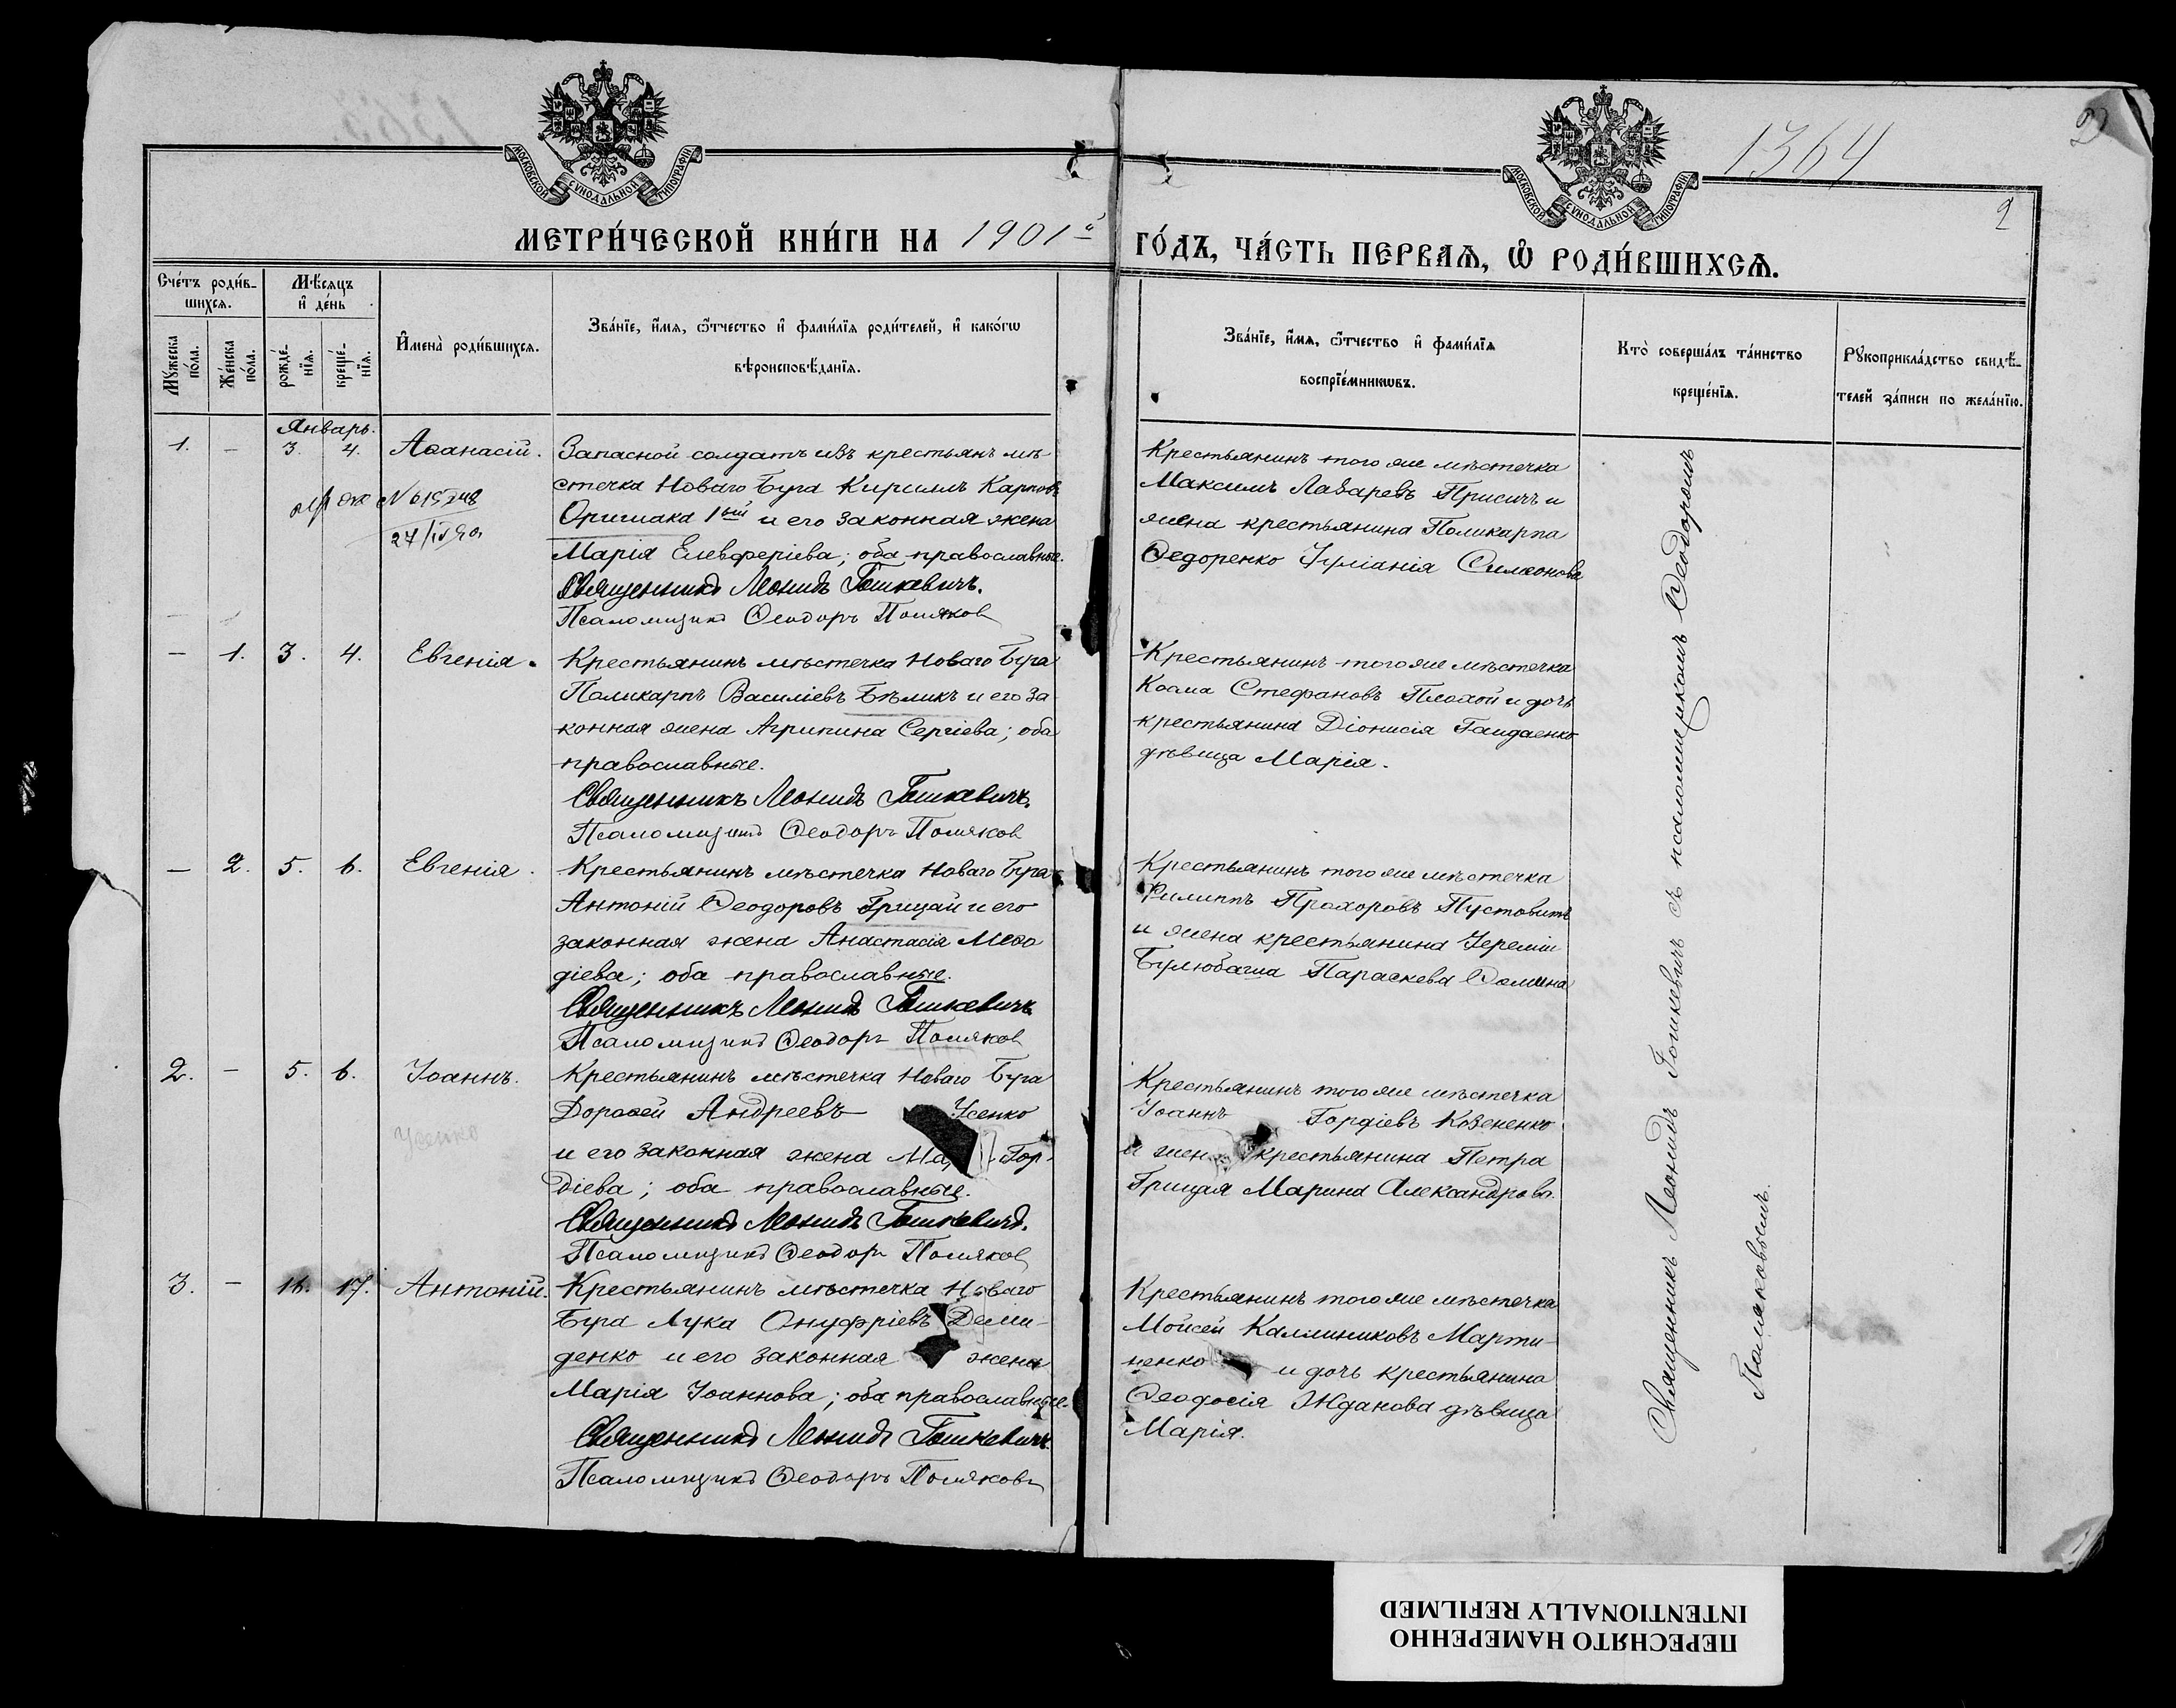 1364
2
2
МОСКОВСКОЙ СѴНОДАЛЬНОЙ ТИПОГРАФІИ
МОСКОВСКОЙ СѴНОДАЛЬНОЙ ТИПОГРАФІИ
МЕТРИ́ЧЕСКОЙ КНИ́ГИ НА 1901й ГО́ДЪ, ЧА́СТЬ ПЕРВАѦ, Ѡ РОДИ́ВШИХСѦ.
Сче́тъ роди́в-
шихсѧ.
Мѣ́сѧцъ
и де́нь
Мꙋ́жеска
по́ла.
Же́нска
по́ла.
рожде́-
нїѧ.
креще́-
нїѧ.
И҆мена̀ роди́вшихсѧ.
Зва́нїе, и҆́мѧ, ѻ҆́тчество и҆ фами́лїѧ роди́телей, и҆ како́гѡ
вѣроисповѣ́данїѧ.
Зва́нїе, и҆́мѧ, ѻ҆́тчество и҆ фами́лїѧ
воспрїе́мникѡвъ.
Кто̀ соверша́лъ та́инство
креще́нїѧ.
Рꙋкоприкла́дство свидѣ́-
телей за́писи по жела́нїю.
Январь.
1. - 3. 4. Аѳанасій.
Запасной солдатъ изъ крестьянъ мѣ
стечка Новаго Буга Кириллъ Карповъ
Оришака 1ый и его законная жена
Марія Елевферіева; оба православные.
Священникъ Леонидъ Гошкевичъ.
Псаломщикъ Ѳеодоръ Поляков
27/IV 901
Крестьянинъ того же мѣстечка
Максимъ Лазаревъ Присичъ и
жена крестьянина Поликарпа
Ѳедоренко Іуліанія Симеонова
- 1. 3. 4. Евгенія.
Крестьянинъ мѣстечка Новаго Буга
Поликарпъ Василіевъ Бѣликъ и его за
конная жена Агрипина Сергіева; оба
православные.
Священникъ Леонидъ Гошкевичъ.
Псаломщикъ Ѳеодоръ Поляков
Крестьянинъ того же мѣстечка
Косма Стефановъ Плохой и дочь
крестьянина Діонисія Гайдаенко
дѣвица Марія.
- 2. 5. 6. Евгенія.
Крестьянинъ мѣстечка Новаго Буга
Антоній Ѳеодоровъ Грицай и его
законная жена Анастасія Меѳо
діева; оба православные.
Священникъ Леонидъ Гошкевичъ
Псаломщикъ Ѳеодоръ Поляков
Крестьянинъ того же мѣстечка
Филиппъ Прохоровъ Пустовитъ
и жена крестьянина Іереміи
Булюбаша Параскева Ѳомина
2. - 5. 6. Іоаннъ.
Усенко
Крестьянинъ мѣстечка Новаго Буга
Дороѳей Андреевъ Усенко
и его законная жена Ма Гор-
діева; оба православные.
Священникъ Леонидъ Гошкевичъ.
Псаломщикъ Ѳеодоръ Поляков
Крестьянинъ того же мѣстечка
Іоаннъ Гордіевъ Козененко
и жен крестьянина Петра
Грицая Марина Александрова.
3. - 16. 17. Антоній.
Крестьянинъ мѣстечка Новаго
Буга Лука Онуфріевъ Деми-
денко и его законная жена
Марія Іоаннова; оба православные.
Священникъ Леонидъ Гошкевичъ.
Псаломщикъ Ѳеодоръ Поляковъ
Крестьянинъ того же мѣстечка
Моисей Каллиниковъ Марти-
ненко и дочь крестьянина
Ѳеодосія Жданова дѣвица
Марія.
Священникъ Леонидъ Гошкевичъ съ псаломщикомъ Ѳеодоромъ
Поляковымъ.
ПЕРЕСНЯТО НАМЕРЕННО
INTENTIONALLY REFILMED